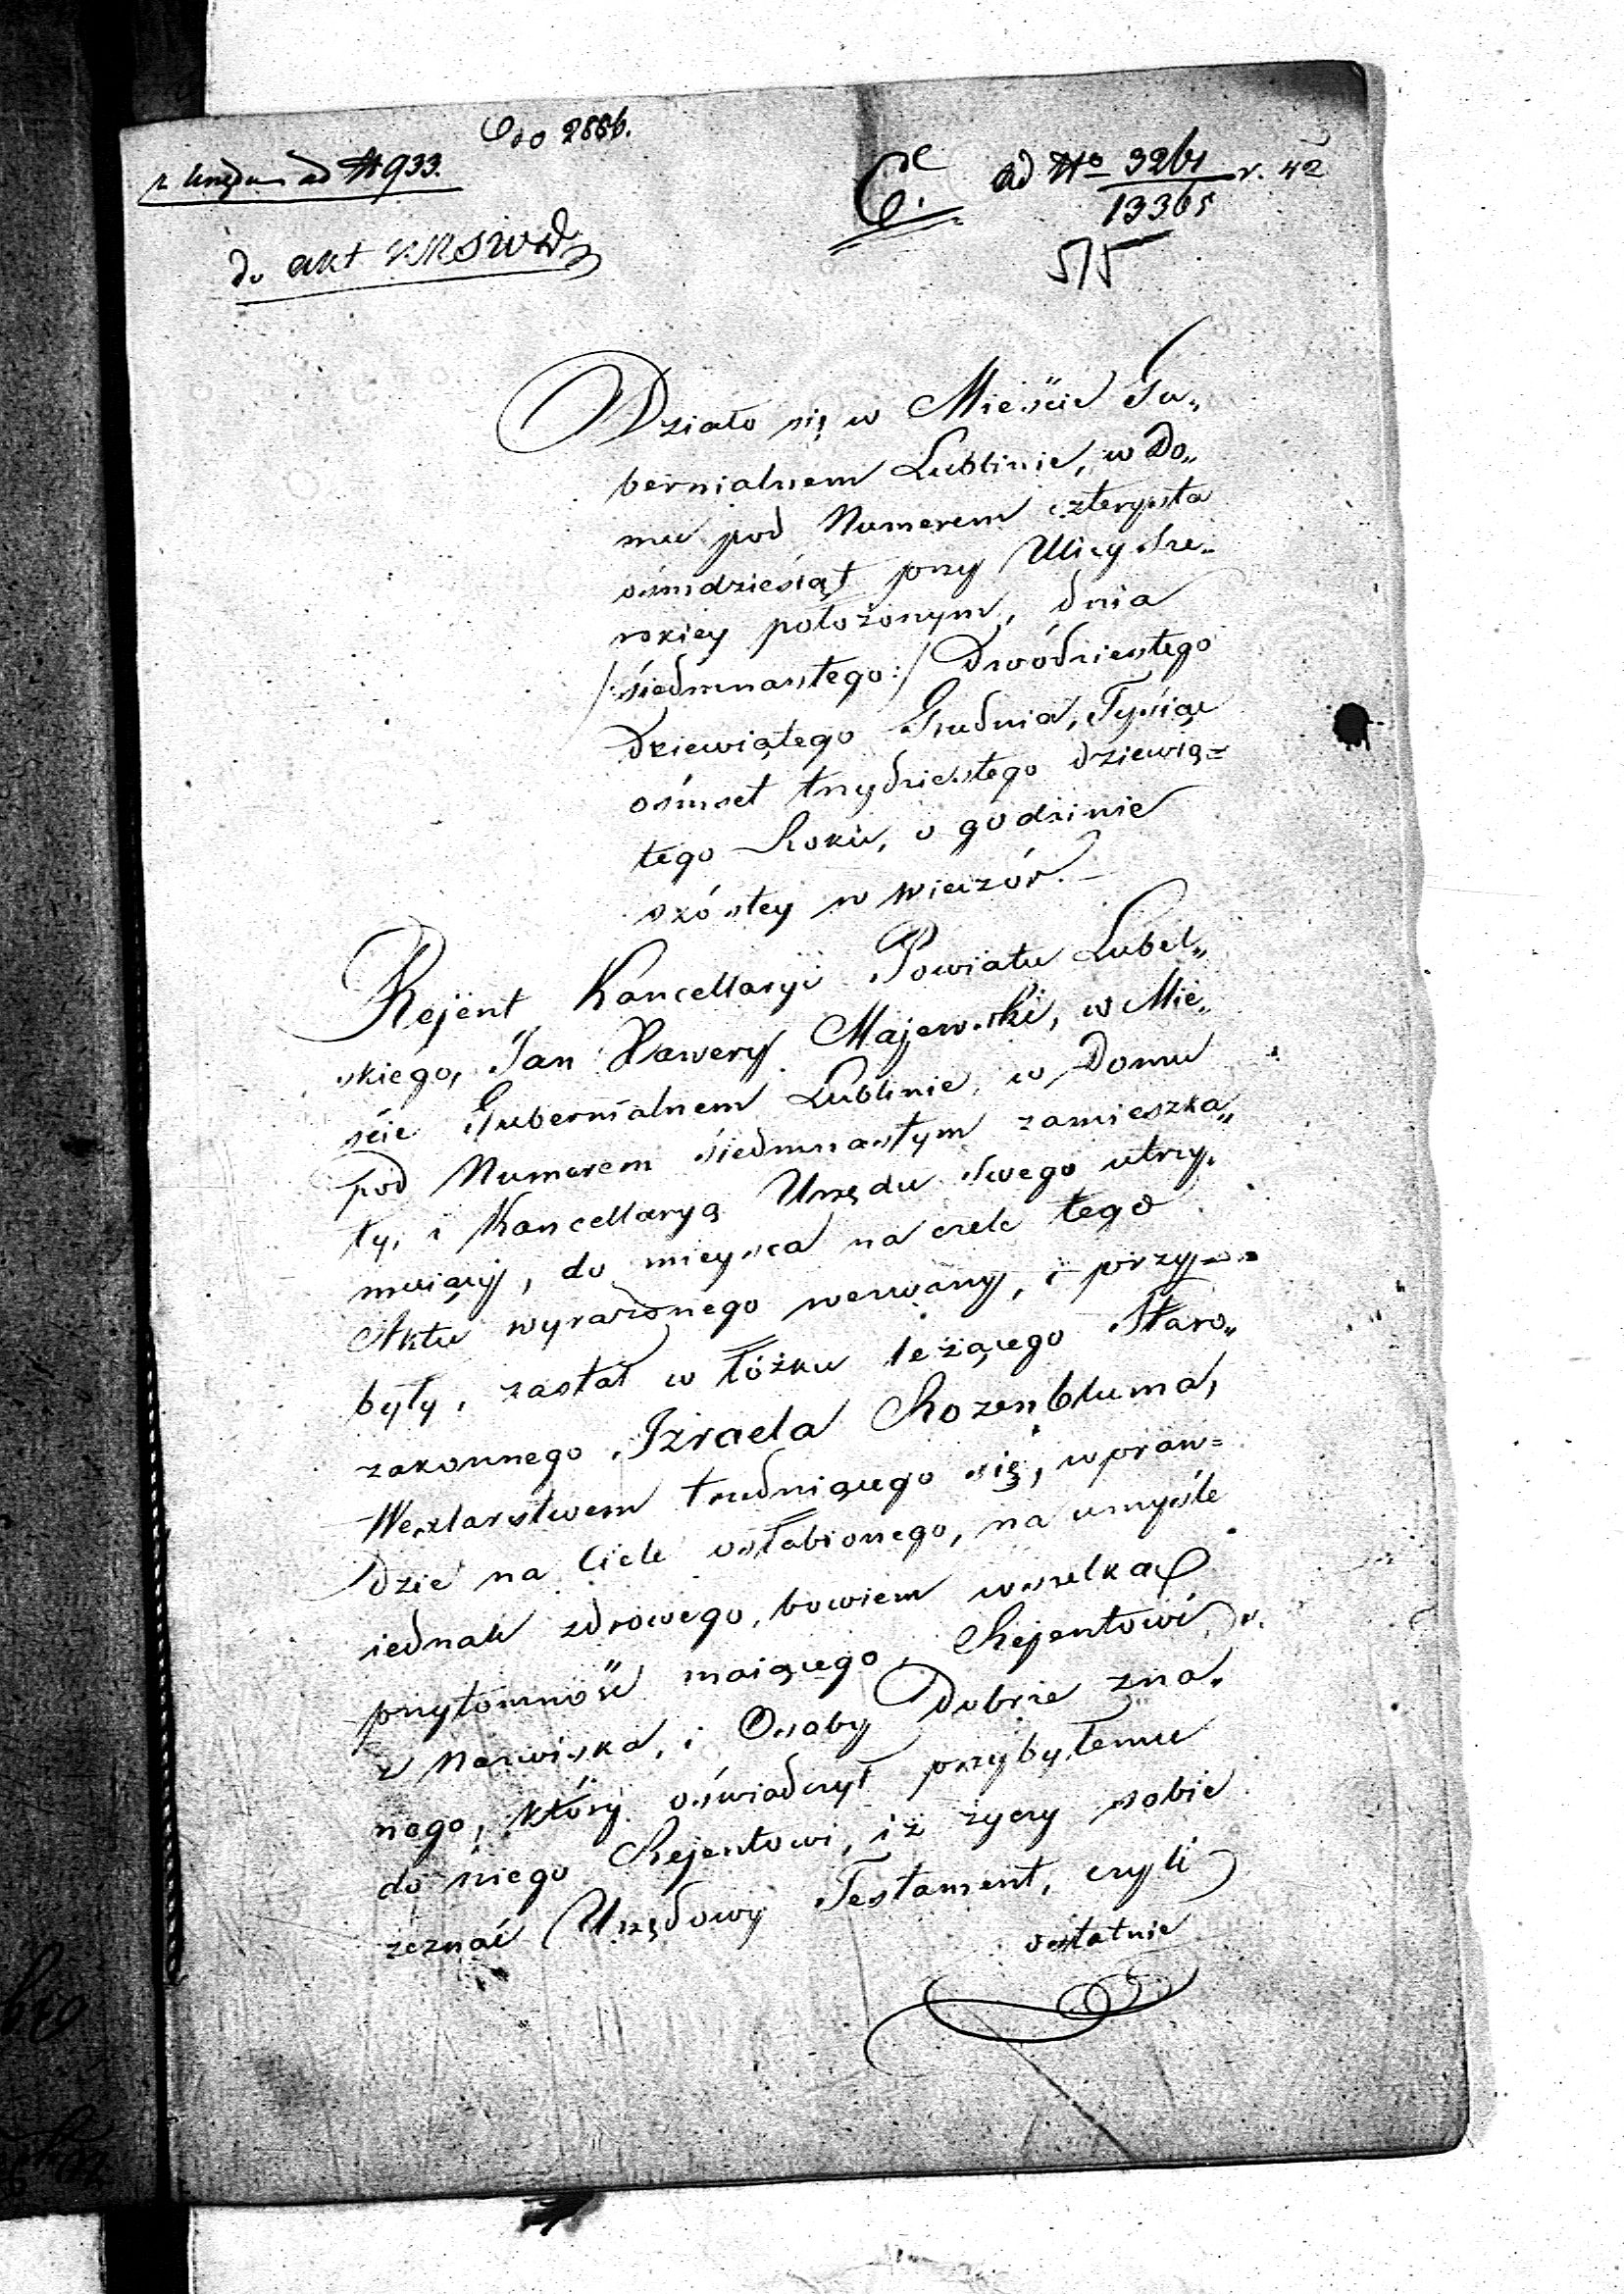 Do 2886.
z Urzędu ad N 933.
do akt KRSWD
C.
ad No 3261 r. 42
13365
515
Działo się w Mieście Gu„
bernialnem Lublinie, w Do„
mu pod Numerem czterysta
ośmdziesiąt przy Ulicy Sze„
rokiey położonym, dnia
/:siedmnastego:/ Dwódziestego
Dziewiątego Grudnia, Tysiąc
ośmset trzydziestego dziewią=
tego Roku, o godzinie
szóstey w wieczór.—
Rejent Kancellaryi Powiatu Lubel„
skiego, Jan Xawery Majewski, w Mie„
ście Gubernialnem Lublinie, w Domu
pod Numerem siedmnastym zamieszka„
ły, i Kancellaryą Urzędu swego utrzy„
muiący, do mieysca na czele tego
Aktu wyrażonego wezwany, i przy=
były, zastał w łóżku leżącego Staro„
zakonnego Izraela Rozenbluma,
Wexlarstwem trudniącego się, wpraw=
dzie na Ciele osłabionego, na umyśle
iednak zdrowego, bowiem wszelką
przytomność maiącego, Rejentowi
z Nazwiska, i Osoby Dobrze zna„
nego, który oświadczył przybyłemu
do niego Rejentowi, iż życzy sobie
zeznać Urzędowy Testament, czyli
ostatnie